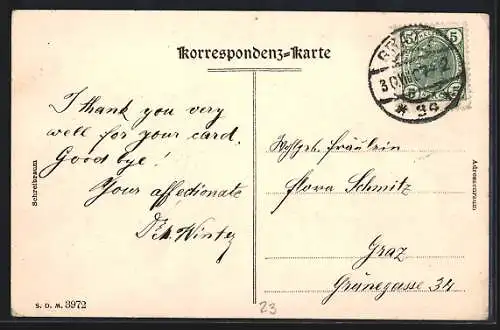 Korrespondenz-Karte
I thank you very
well for your card.
Good bye!
Your affectionate
Wohlgeb. Fräulein
Flora Schmitz
Graz
Grünegasse 34
Schreibraum
Adressenraum
S. D. M. 3972
23
5 5
GRAZ